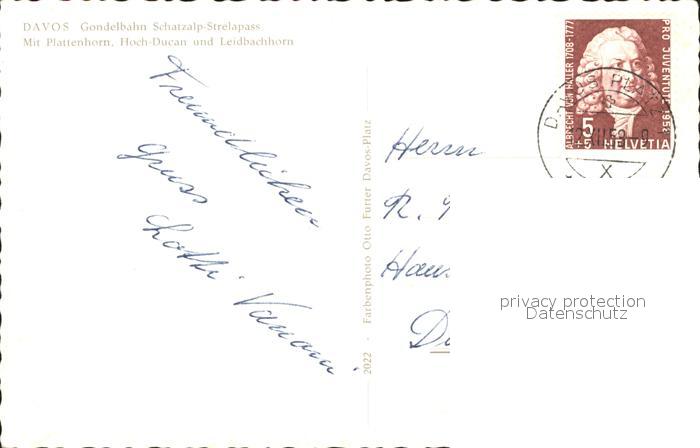 DAVOS Gondelbahn Schatzalp-Strélapass
Mit Plattenhorn, Hoch-Ducan und Leidbachhorn
Freundlichen
Gruss
Lotti
2022 · Farbenphoto Otto Furter Davos-Platz
ALBRECHT VON HALLER 1708-1777
PRO JUVENTUTE 1958
5
+5
HELVETIA
DAVOS PLATZ
X
Herrn
R.
privacy protection
Datenschutz